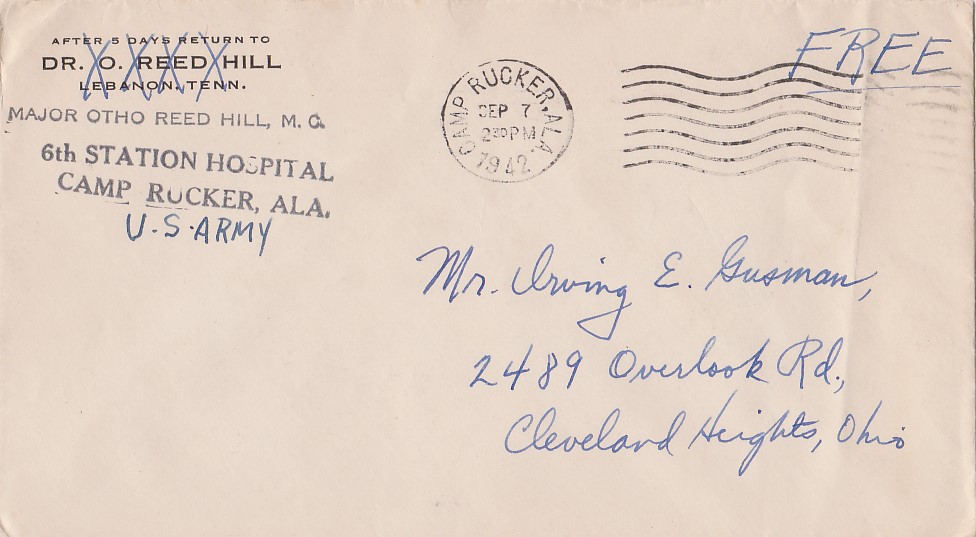 AFTER 5 DAYS RETURN TO
DR. O. REED HILL
LEBANON, TENN.
XXXX
MAJOR OTHO REED HILL, M. C.
6th STATION HOSPITAL
CAMP RUCKER, ALA.
U.S. ARMY
CAMP RUCKER, ALA.
SEP 7
230 PM
1942
FREE
Mr. Irving E. Gusman,
2489 Overlook Rd.,
Cleveland Heights, Ohio